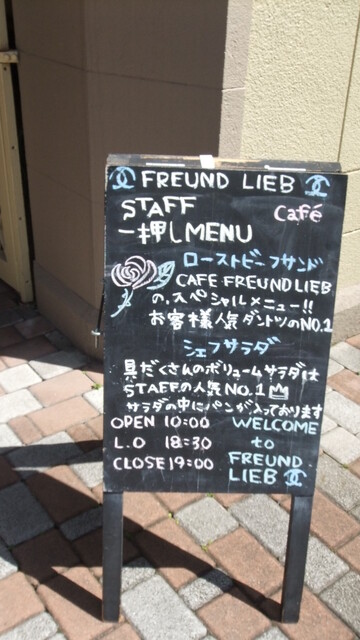 FREUND LIEB
STAFF Café
一押しMENU
ローストビーフサンド
CAFE FREUND LIEB
の、スペシャルメニュー!!
お客様人気ダントツのNO.1
シェフサラダ
具だくさんのボリュームサラダは
STAFFの人気NO.1
サラダの中にパンが入っております
OPEN 10:00 WELCOME
L.O 18:30 to
CLOSE 19:00 FREUND
LIEB